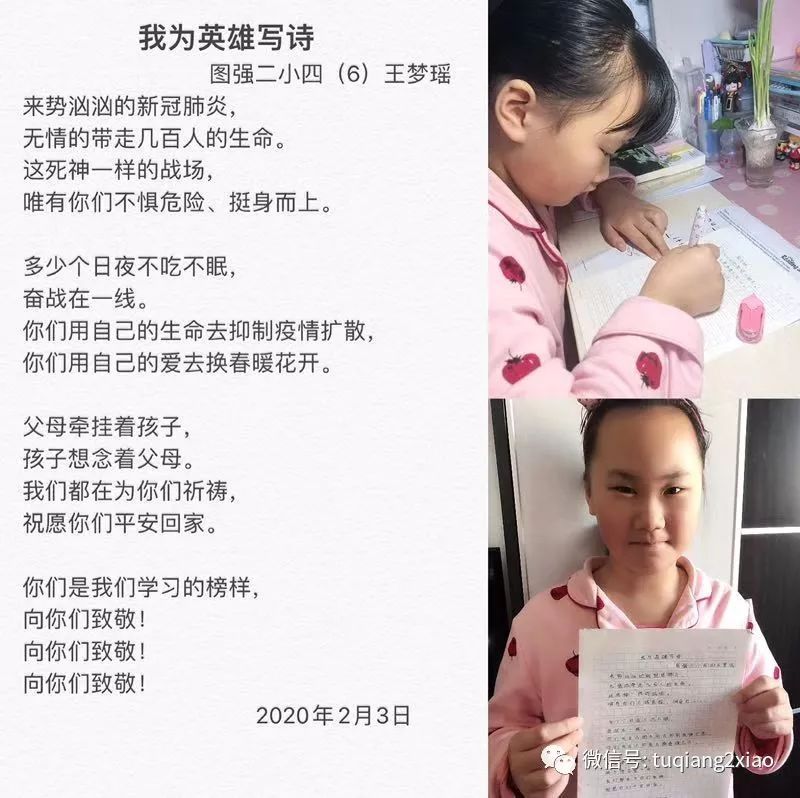 我为英雄写诗
图强二小四（6）王梦瑶
来势汹汹的新冠肺炎，
无情的带走几百人的生命。
这死神一样的战场，
唯有你们不惧危险、挺身而上。
多少个日夜不吃不眠，
奋战在一线。
你们用自己的生命去抑制疫情扩散，
你们用自己的爱去换春暖花开。
父母牵挂着孩子，
孩子想念着父母。
我们都在为你们祈祷，
祝愿你们平安回家。
你们是我们学习的榜样，
向你们致敬！
向你们致敬！
向你们致敬！
2020年2月3日
微信号: tuqiang2xiao